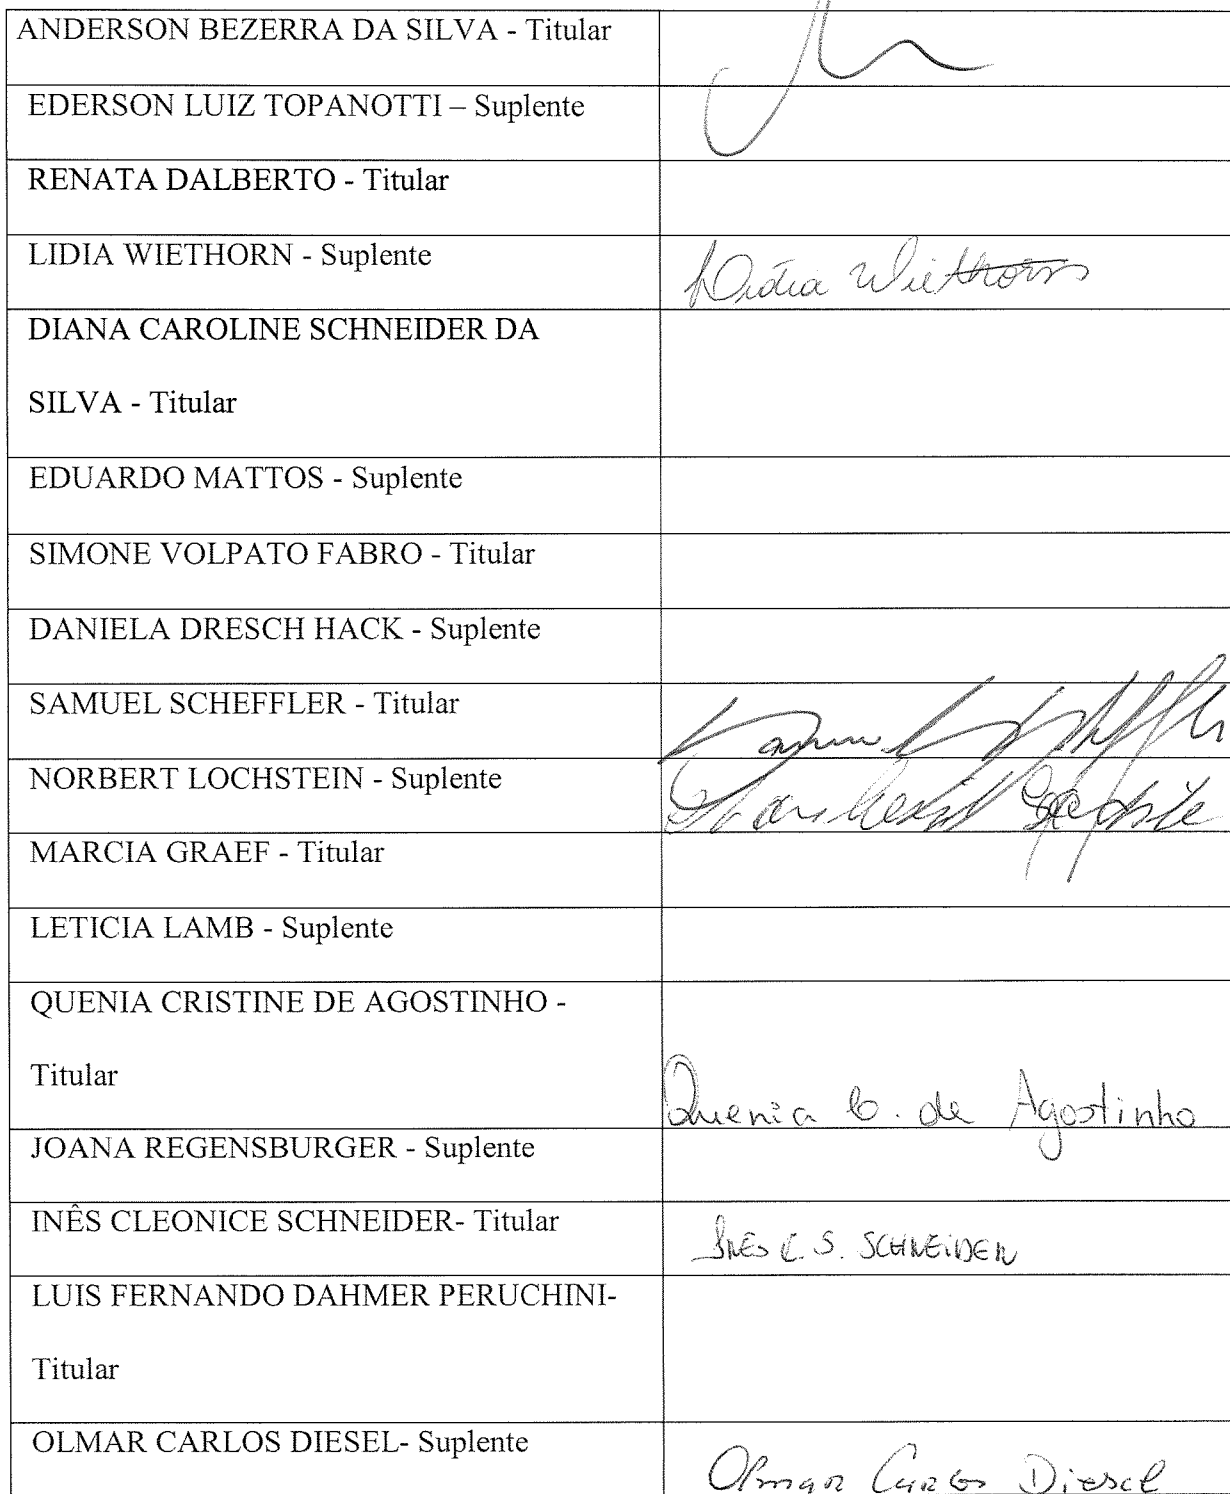 ANDERSON BEZERRA DA SILVA - Titular
EDERSON LUIZ TOPANOTTI – Suplente
RENATA DALBERTO - Titular
LIDIA WIETHORN - Suplente
Lidia Wiethorn
DIANA CAROLINE SCHNEIDER DA
SILVA - Titular
EDUARDO MATTOS - Suplente
SIMONE VOLPATO FABRO - Titular
DANIELA DRESCH HACK - Suplente
SAMUEL SCHEFFLER - Titular
NORBERT LOCHSTEIN - Suplente
MARCIA GRAEF - Titular
LETICIA LAMB - Suplente
QUENIA CRISTINE DE AGOSTINHO -
Titular
Quenia C. de Agostinho
JOANA REGENSBURGER - Suplente
INÊS CLEONICE SCHNEIDER- Titular
INÊS C. S. SCHNEIDER
LUIS FERNANDO DAHMER PERUCHINI-
Titular
OLMAR CARLOS DIESEL- Suplente
Olmar Carlos Diesel